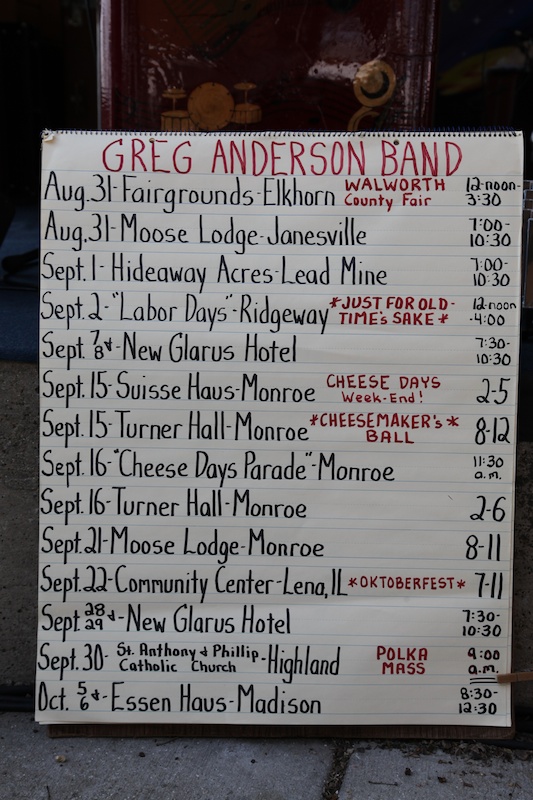 GREG ANDERSON BAND
Aug. 31-Fairgrounds-Elkhorn WALWORTH County Fair 12-noon-3:30
Aug. 31-Moose Lodge-Janesville 7:00-10:30
Sept. 1-Hideaway Acres-Lead Mine 7:00-10:30
Sept. 2-"Labor Days"-Ridgeway *JUST FOR OLD-TIME's SAKE* 12-noon-4:00
Sept. 7 & 8-New Glarus Hotel 7:30-10:30
Sept. 15-Suisse Haus-Monroe CHEESE DAYS Week-End! 2-5
Sept. 15-Turner Hall-Monroe *CHEESEMAKER's BALL* 8-12
Sept. 16-"Cheese Days Parade"-Monroe 11:30 a.m.
Sept. 16-Turner Hall-Monroe 2-6
Sept. 21-Moose Lodge-Monroe 8-11
Sept. 22-Community Center-Lena, IL *OKTOBERFEST* 7-11
Sept. 28 & 29-New Glarus Hotel 7:30-10:30
Sept. 30-St. Anthony & Phillip Catholic Church-Highland POLKA MASS 9:00 a.m.
Oct. 5 & 6-Essen Haus-Madison 8:30-12:30